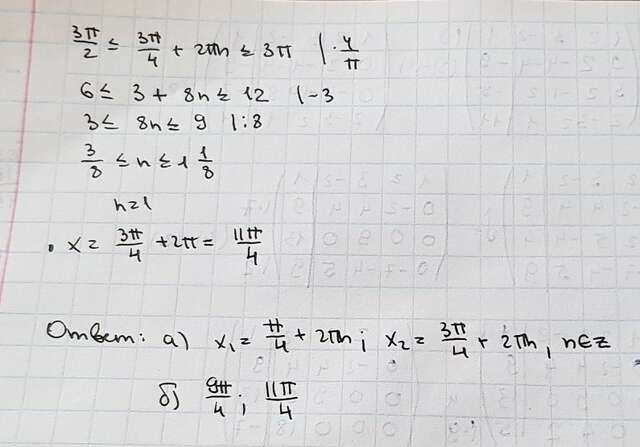 3π/2 ≤ 3π/4 + 2πn ≤ 3π | · 4/π
6 ≤ 3 + 8n ≤ 12 | -3
3 ≤ 8n ≤ 9 | :8
3/8 ≤ n ≤ 1 1/8
n=1
x = 3π/4 + 2π = 11π/4
Ответ: а) x₁ = π/4 + 2πn; x₂ = 3π/4 + 2πn, n∈z
б) 9π/4; 11π/4